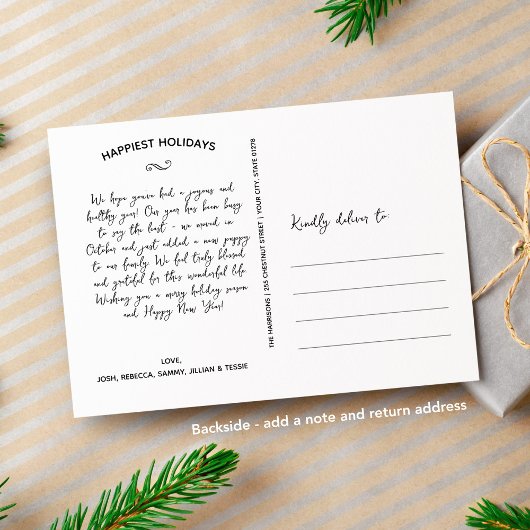 HAPPIEST HOLIDAYS
We hope you've had a joyous and
healthy year! Our year has been busy
to say the least - we moved in
October and just added a new puppy
to our family. We feel truly blessed
and grateful for this wonderful life.
Wishing you a merry holiday season
and Happy New Year!
LOVE,
JOSH, REBECCA, SAMMY, JILLIAN & TESSIE
THE HARRISONS | 255 CHESTNUT STREET | YOUR CITY, STATE 01278
Kindly deliver to:
Backside - add a note and return address